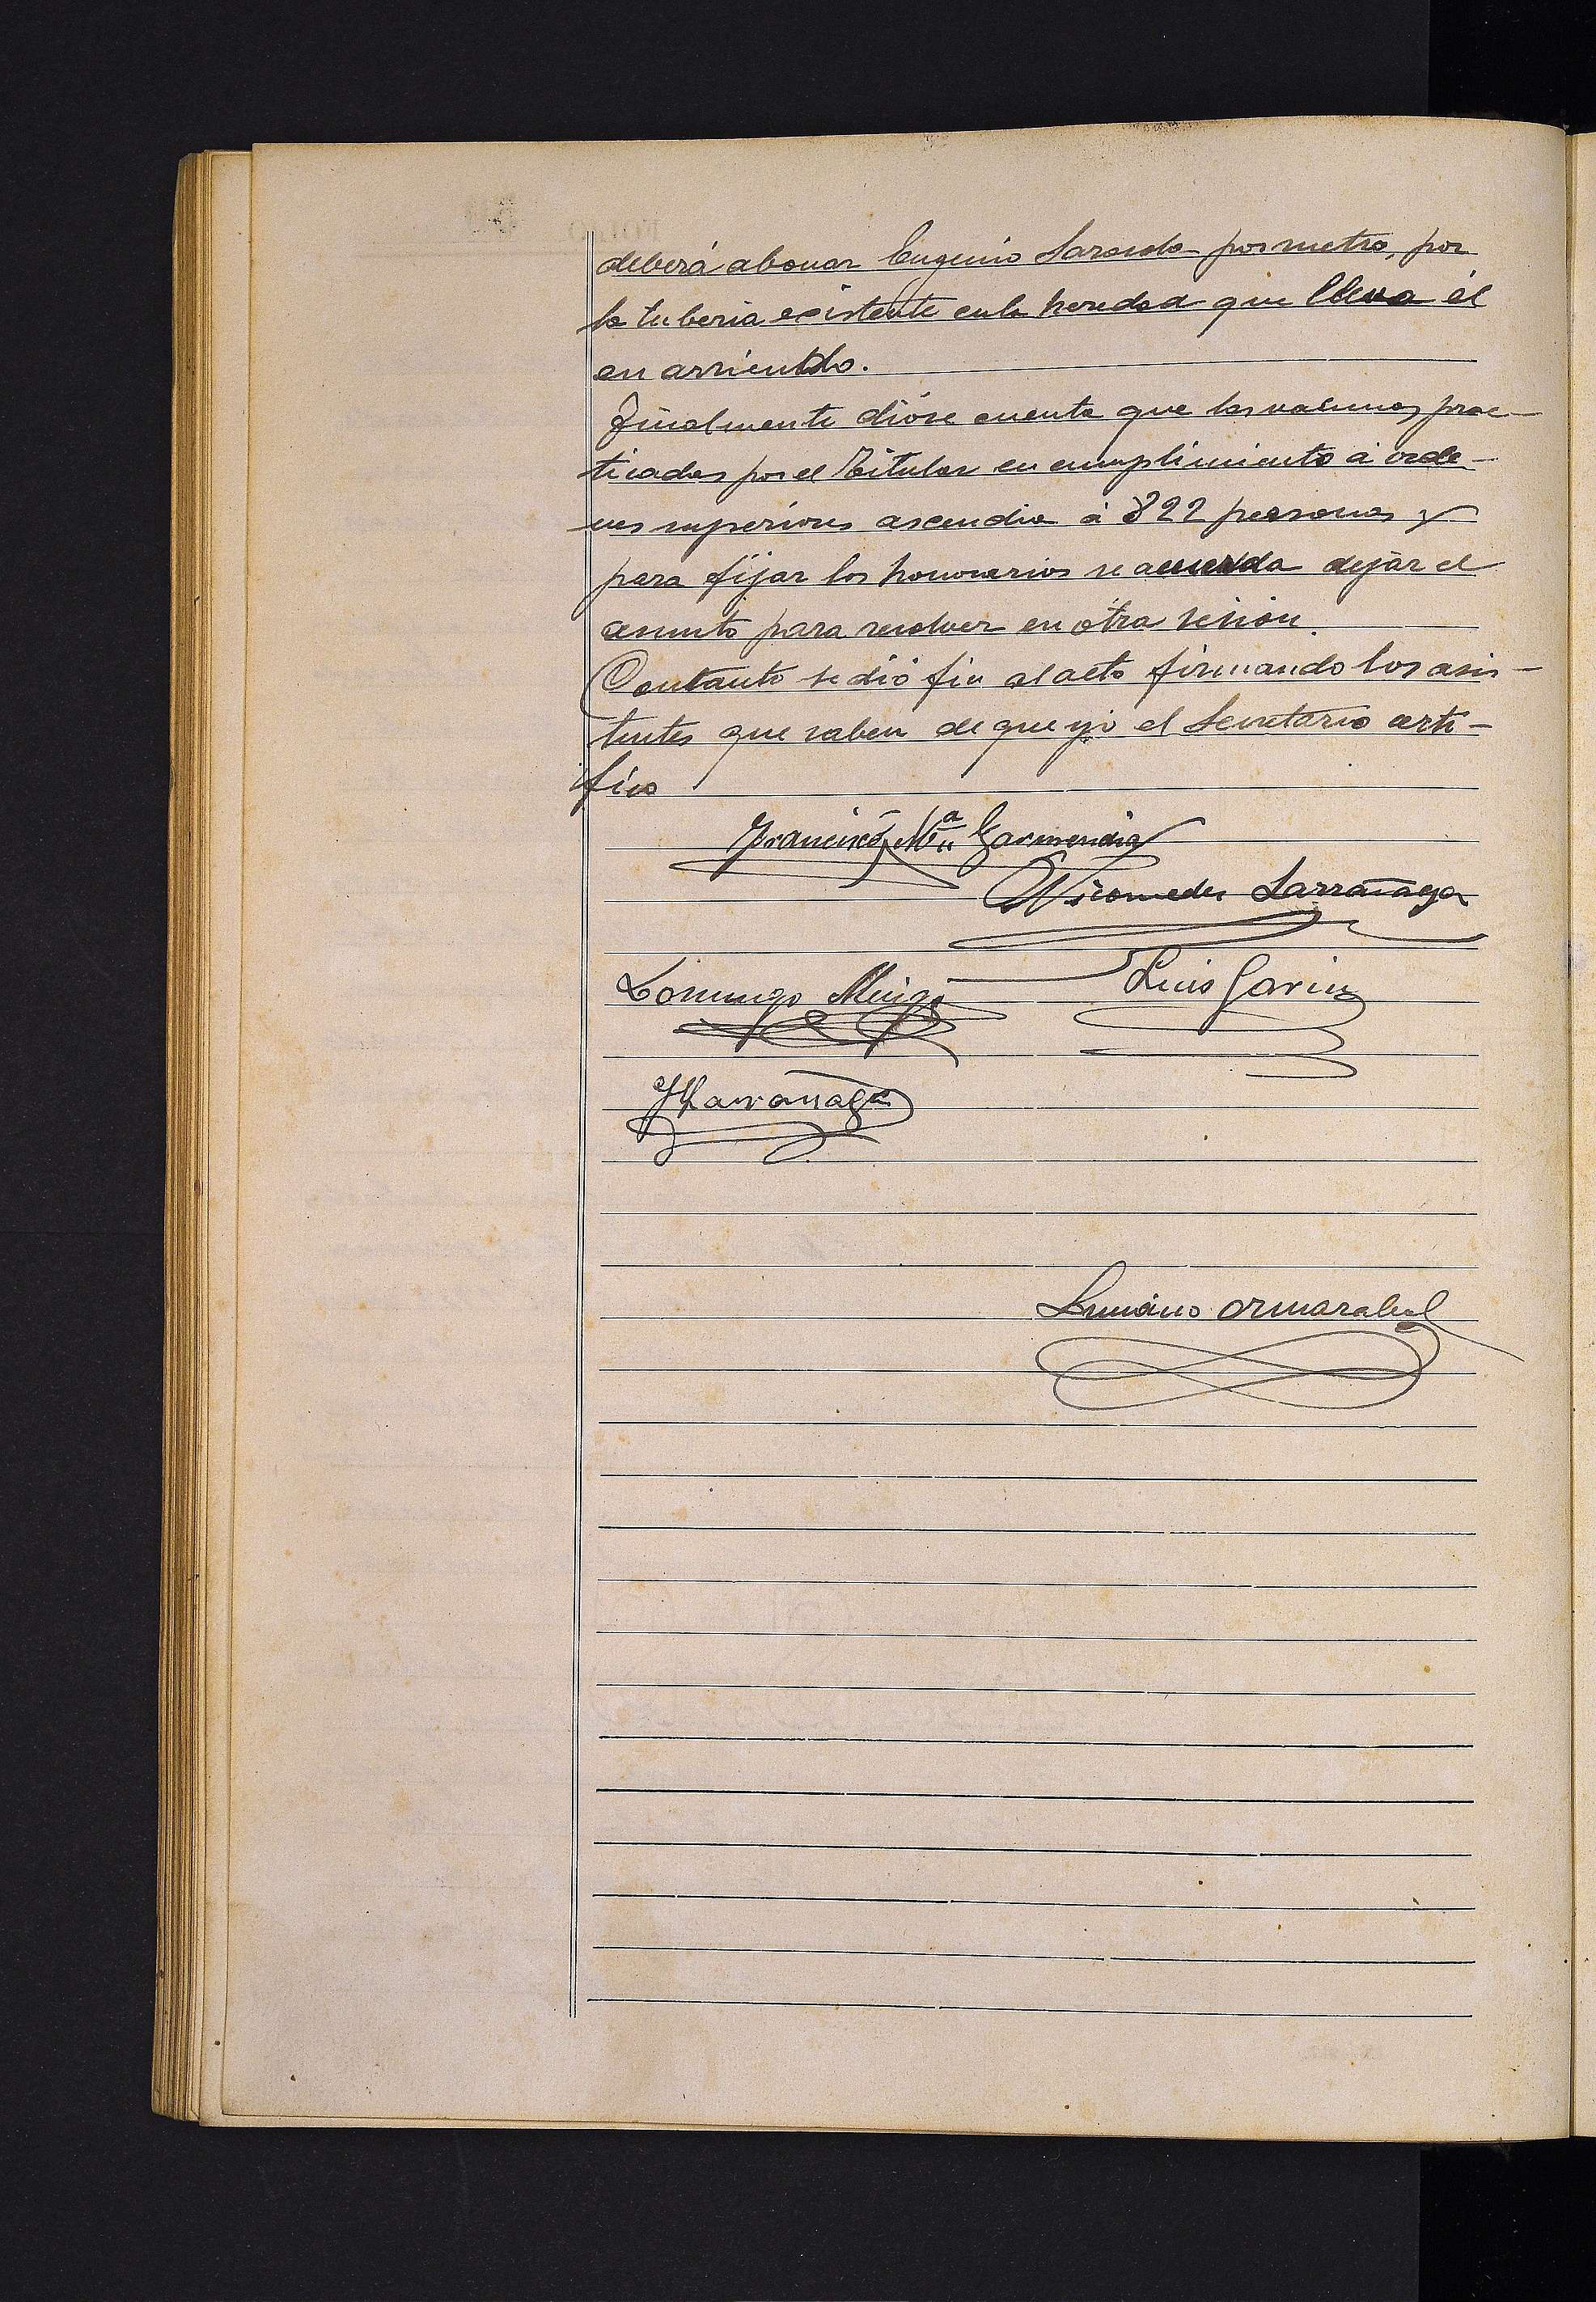 deberá abonar Eugenio Sarasola por metro, por
la tuberia existente en la heredad que lleva él
en arriendo.
Finalmente dióse cuenta que las vacunas prac-
ticadas por el Titular en cumplimiento á orde-
nes superiores ascendia á 822 personas y
para fijar los honorarios se acuerda dejar el
asunto para resolver en otra sesion.
Con tanto se dió fin al acto firmando los asis-
tentes que saben de que yo el Secretario certi-
fico
Francisco Mª Garmendia
Nicomedes Larrañaga
Domingo
Luis Garin
J Larrañaga
Luciano Ormazabal